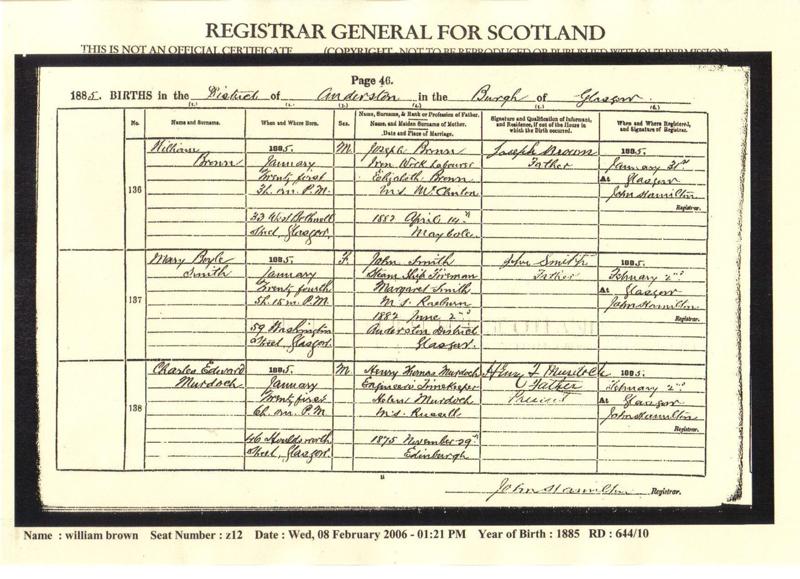 REGISTRAR GENERAL FOR SCOTLAND
THIS IS NOT AN OFFICIAL CERTIFICATE (COPYRIGHT - NOT TO BE REPRODUCED OR PUBLISHED WITHOUT PERMISSION)
Page 46.
1885. BIRTHS in the District of Anderston in the Burgh of Glasgow.
(1.) (2.) (3.) (4.) (5.) (6.)
No. Name and Surname. When and Where Born. Sex. Name, Surname, & Rank or Profession of Father. Name, and Maiden Surname of Mother. Date and Place of Marriage. Signature and Qualification of Informant, and Residence, if out of the House in which the Birth occurred. When and Where Registered, and Signature of Registrar.
William 1885. M. Joseph Brown Joseph Brown 1885.
Brown January Iron Work Labourer Father January 31st
Twenty first Elizabeth Brown At Glasgow
136 3h. m. P.M. M.S. John Hamilton
Registrar.
33 West Bothwell 1882 April 14th
Street, Glasgow. Maybole.
Mary Boyle 1885. F. John Smith John Smith 1885.
Smith January Steam Ship Fireman Father February 2nd
Twenty fourth Margaret Smith At Glasgow
137 5h. 15 m. P.M. M.S. Raeburn John Hamilton
1882 June 2nd Registrar.
59 Washington Anderston District
Street, Glasgow. Glasgow.
Charles Edward 1885. M. Henry Thomas Murdoch Henry T Murdoch 1885.
Murdoch January Engineers Timekeeper Father February 2nd
Twenty first Helen Murdoch Present At Glasgow
138 6h. m. P.M. M.S. Russell John Hamilton
Registrar.
46 Houldsworth 1875 November 29th
Street, Glasgow. Edinburgh
John Hamilton Registrar.
Name : william brown Seat Number : z12 Date : Wed, 08 February 2006 - 01:21 PM Year of Birth : 1885 RD : 644/10